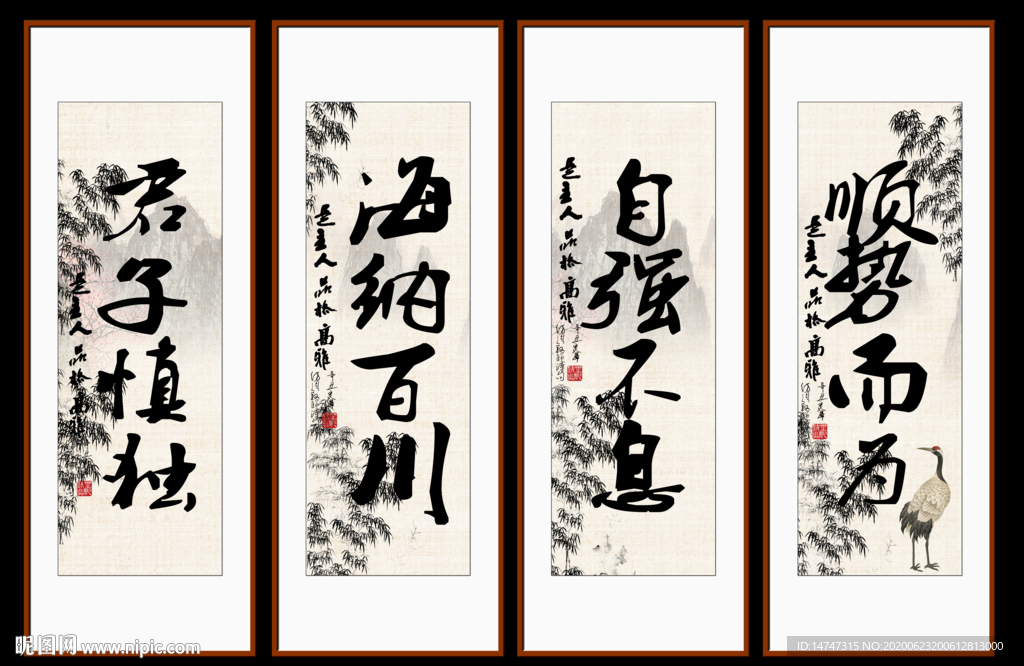 君子慎独
是主人品格高雅
海纳百川
是主人品格高雅
自强不息
是主人品格高雅
顺势而为
是主人品格高雅
昵图网 www.nipic.com
ID:14747315 NO:20200623200612813000